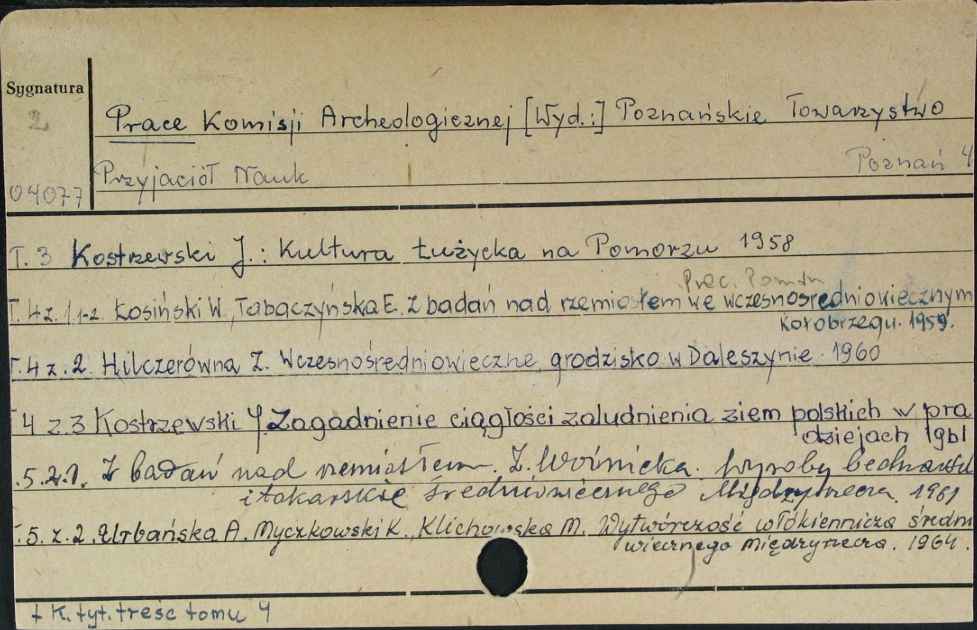 Sygnatura
2
Prace Komisji Archeologicznej [Wyd.:] Poznańskie Towarzystwo
Przyjaciół Nauk Poznań 4
04077
T. 3 Kostrzewski J.: Kultura Łużycka na Pomorzu 1958
Prac. Pomor
T. 4 z. 1-2 Łosiński W., Tabaczyńska E. Z badań nad rzemiosłem we wczesnośredniowiecznym
Kołobrzegu. 1959.
T. 4 z. 2. Hilczerówna Z. Wczesnośredniowieczne grodzisko w Daleszynie. 1960
4 z. 3 Kostrzewski J. Zagadnienie ciągłości zaludnienia ziem polskich w pra
dziejach
.5. z.1. Z badań nad rzemiosłem. Z. Woźnicka. Wyroby bednarskie
i tokarskie średniowiecznego Międzyrzecza. 1961
T. 5. z. 2. Urbańska A. Myczkowski K., Klichowska M. Wytwórczość włókiennicza średn
wiecznego Międzyrzecza. 1964.
+ K. tyt. treść tomu 4